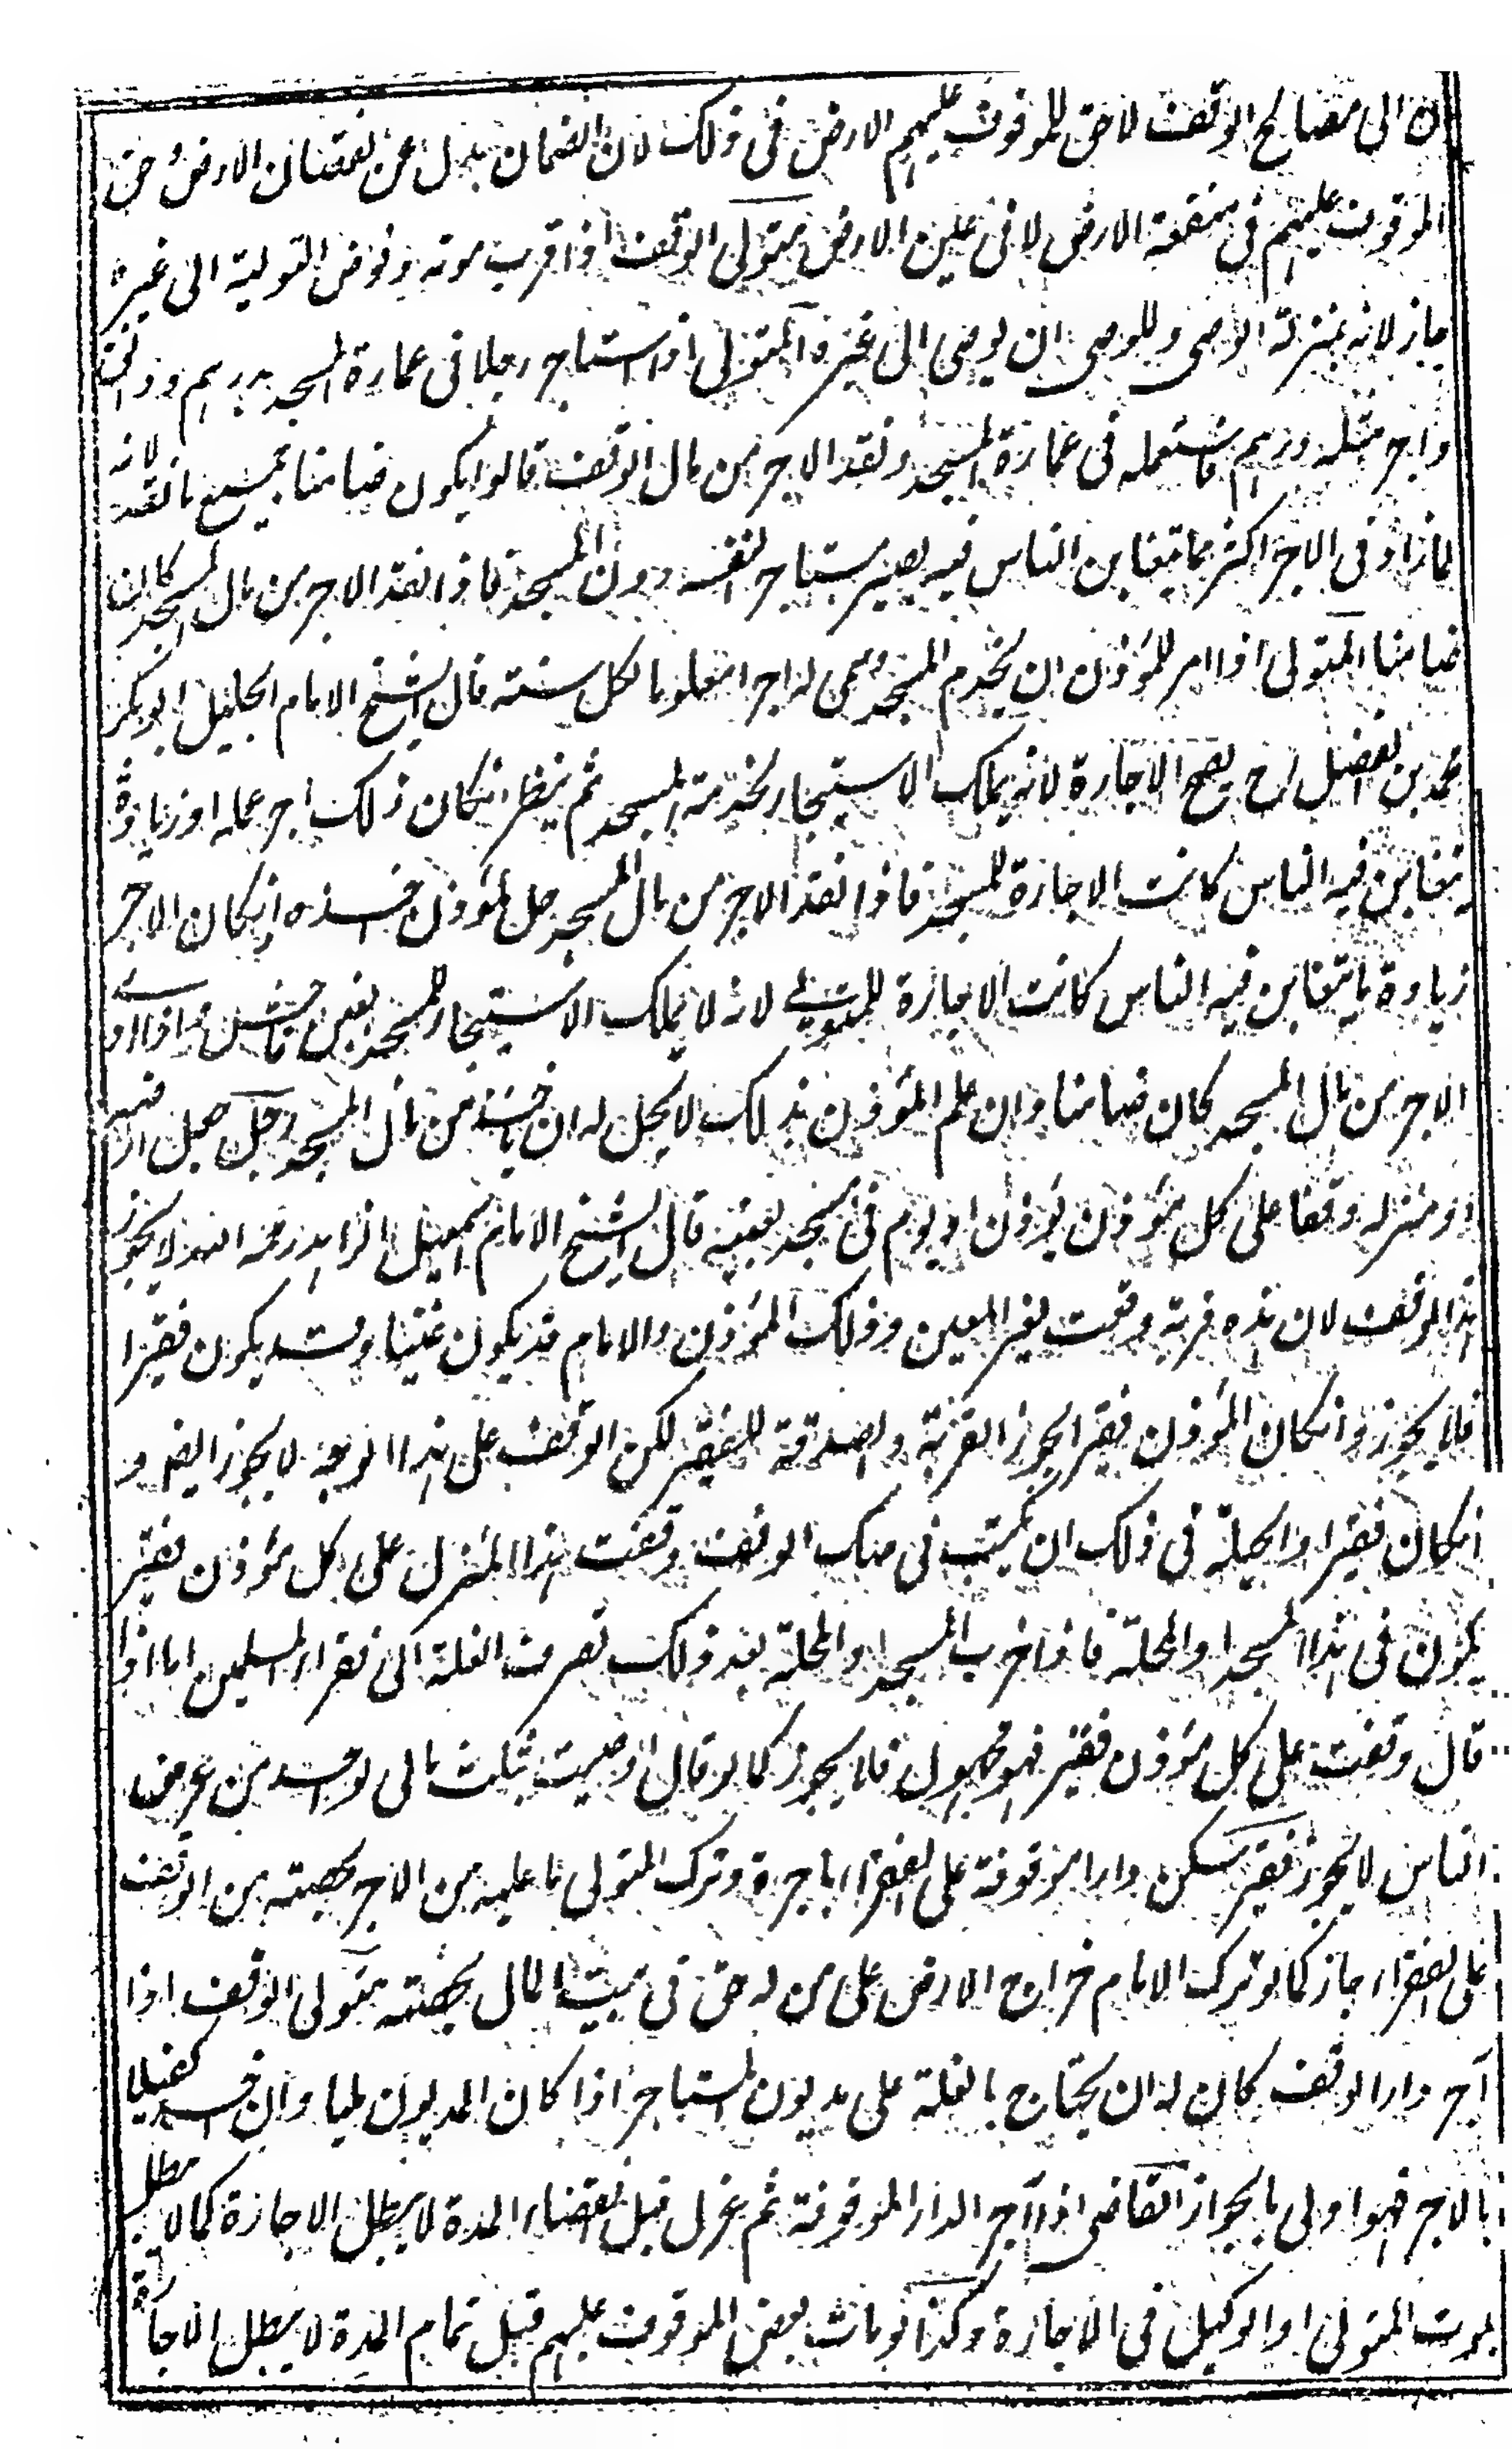 ان الى مصالح الوقف لا حق للموقوف عليهم الارض فى ذلك لان الضمان بدل عن نقصان الارض وحق
الموقوف عليهم فى منفعة الارض لا فى عين الارض متولى الوقف اذا قرب موته وفوض التولية الى غيره
جاز لانه بمنزلة الوصى وللوصى ان يوصى الى غيره المتولى اذا استاجر رجلا فى عمارة المسجد بدرهم ودانق
واجر مثله درهم فاستعمله فى عمارة المسجد ونقد الاجر من مال الوقف قالوا يكون ضامنا بجميع ما نقد لانه
لما زاد فى الاجر اكثر مما يتغابن الناس فيه يصير مستاجر النفسه دون المسجد فاذا نقد الاجر من مال المسجد كان
ضامنا المتولى اذا امر المؤذن ان يخدم المسجد وسمى له اجرا معلوما لكل سنة قال الشيخ الامام الجليل ابو بكر
محمد بن الفضل رح يصح الاجارة لانه يملك الاستيجار لخدمة المسجد ثم ينظر انكان ذلك اجر عمله او زيادة
يتغابن فيه الناس كانت الاجارة للمسجد فاذا نقد الاجر من مال المسجد حل للمؤذن اخذه وانكان الاجر
زيادة ما يتغابن فيه الناس كانت الاجارة للمتولى لانه لا يملك الاستيجار للمسجد بغبن فاحش فاذا ادى
الاجر من مال المسجد كان ضامنا وان علم المؤذن بذلك لا يحل له ان ياخذ من مال المسجد رجل جعل ارضه
او منزله وقفا على كل مؤذن يؤذن او يوم فى مسجد بعينه قال الشيخ الامام اسمعيل الزاهد رحمه الله لا يجوز
هذا الوقف لان هذه قربة وقعت لغير المعين وذلك المؤذن والامام قد يكون غنيا وقد يكون فقيرا
فلا يجوز وانكان المؤذن فقيرا يجوز القربة والصدقة للفقير لكن الوقف على هذا الوجه لا يجوز ايضا و
انكان فقيرا والحيلة فى ذلك ان يكتب فى صك الوقف وقفت هذا المنزل على كل مؤذن فقير
يكون فى هذا المسجد او المحلة فاذا خرب المسجد او المحلة بعد ذلك تصرف الغلة الى فقراء المسلمين اما اذا
قال وقفت على كل مؤذن فقير فهو مجهول فلا يجوز كما لو قال اوصيت بثلث مالى لواحد من عرض
الناس لا يجوز فقير سكن دارا موقوفة على الفقراء باجرة وترك المتولى ما عليه من الاجر بحصته من الوقف
على الفقراء جاز كما لو ترك الامام خراج الارض على من له حق فى بيت المال بحصته متولى الوقف اذا
آجر دار الوقف كان له ان يحتال بالغلة على مديون المستاجر اذا كان المديون مليا وان اخذ كفيلا
بالاجر فهو اولى بالجواز القاضى اذا آجر الدار الموقوفة ثم عزل قبل انقضاء المدة لا يبطل الاجارة كما لا يبطل
بموت المتولى او الوكيل فى الاجارة وكذا لو مات بعض الموقوف عليهم قبل تمام المدة لا يبطل الاجارة